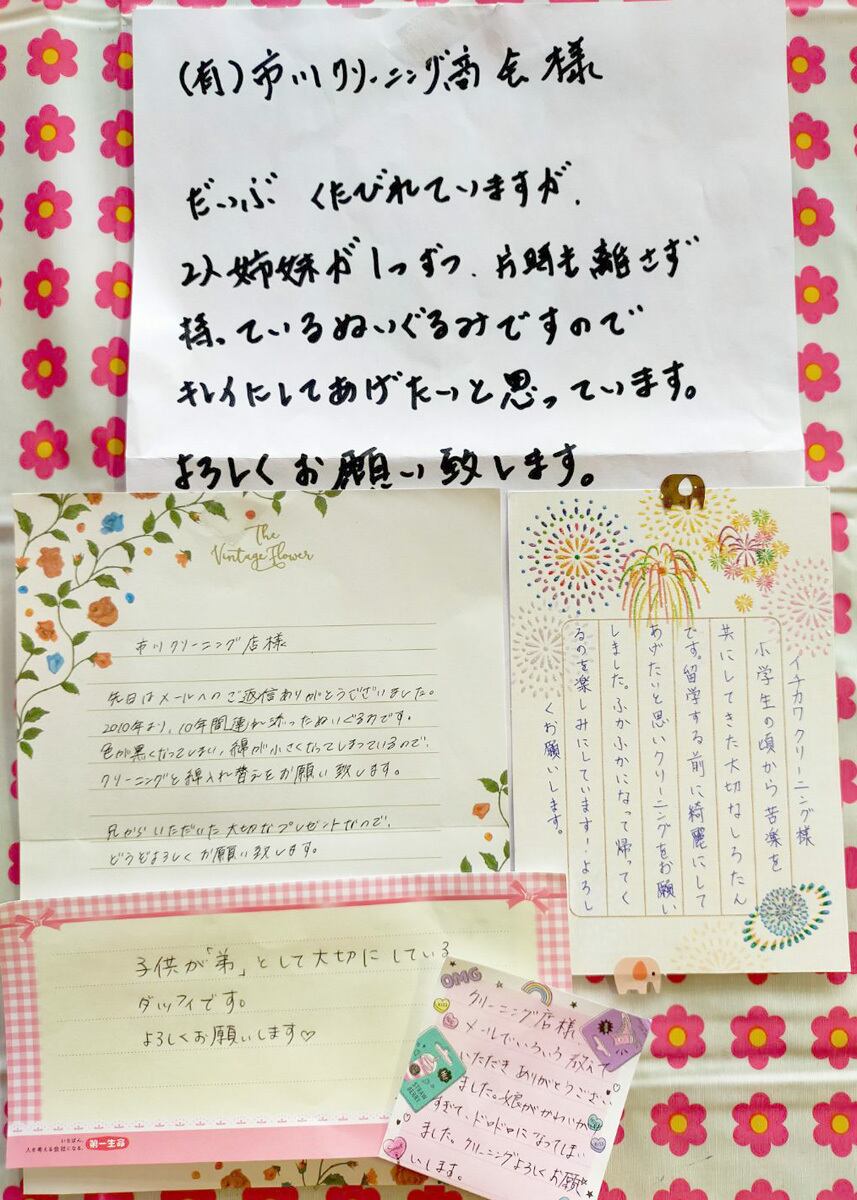 (有)市川クリーニング商会様
だいぶ くたびれていますが、
2人姉妹が1つずつ、片時も離さず
持っているぬいぐるみですので
キレイにしてあげたいと思っています。
よろしくお願い致します。
The
Vintage Flower
市川クリーニング店様
先日はメールへのご返信ありがとうございました。
2010年より、10年間連れ添ったぬいぐるみです。
色が黒くなってしまい、綿が小さくなってしまっているので、
クリーニングと綿入れ替えをお願い致します。
兄からいただいた大切なプレゼントなので、
どうぞよろしくお願い致します。
イチカワクリーニング様
小学生の頃から苦楽を
共にしてきた大切なしろたん
です。留学する前に綺麗にして
あげたいと思いクリーニングをお願い
しました。ふかふかになって帰ってく
るのを楽しみにしています!よろし
くお願いします。
子供が「弟」として大切にしている
ダッフィです。
よろしくお願いします♡
いちばん、
人を考える会社になる。 第一生命
OMG
クリーニング店様
メールでいろいろ教えて
いただきありがとうござい
ました。娘がかわいがり
すぎて、ドロドロになってしまい
ました。クリーニングよろしくお願
いします。